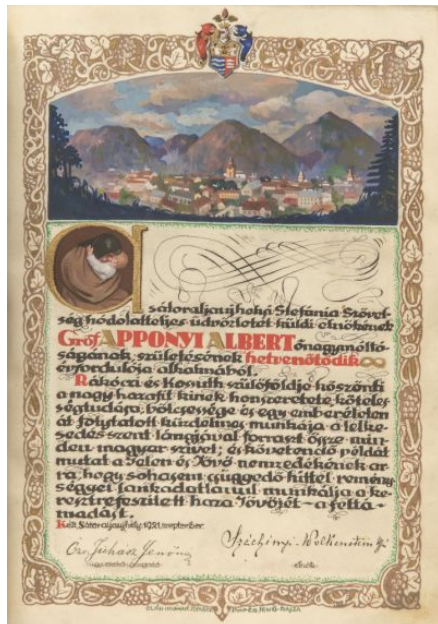 A sátoraljaujhelyi Stefánia Szövet-
ség hódolatteljes üdvözletét küldi elnökének
Gróf APPONYI ALBERT őnagyméltó-
ságának, születésének hetvenötödik
évfordulója alkalmából.
Rákóczi és Kossuth szülőföldje köszönti
a nagy hazafit kinek honszeretete, köteles-
ségtudása, bölcsessége és egy emberéleten
át folytatott küzdelmes munkája a lelke-
sedés szent lángjával forraszt össze min-
den magyar szivet; és követendő példát
mutat a Jelen és Jövő nemzedékének ar-
ra, hogy sohasem csüggedő hittel remény-
séggel lankadatlanul munkálja a ke-
resztrefeszitett haza Jövőjét – a feltá-
madást.
Kelt, Sátoraljaujhely, 1921. szeptember.
Juhász Jenőné
elnök